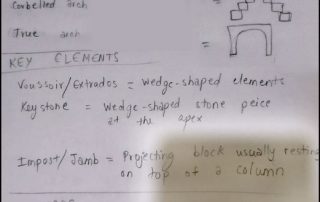 Corbelled arch =
True arch =
KEY ELEMENTS
Voussoir/Extrados = wedge-shaped elements
Keystone = Wedge-shaped stone peice
at the apex
Impost/Jamb = Projecting block usually resting
on top of a column